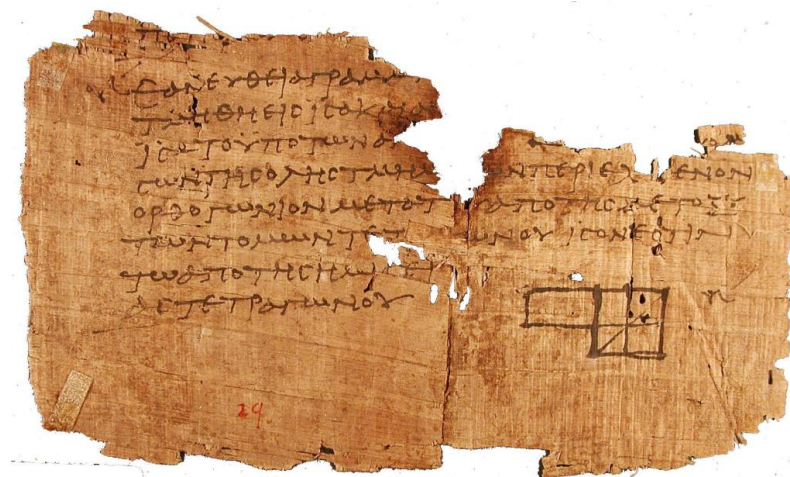 ΕΑΝ ΕΥΘΕΙΑ ΓΡΑΜΜ
ΤΜΗΘΗ ΕΙϹ ΙϹΑ ΚΑΙ
ΙϹΑ ΤΟ ΥΠΟ ΤΩΝ Α
ϹΩΝ ΤΗϹ ΟΛΗϹ ΤΜΗΜ ΩΝ ΠΕΡΙΕΧΟΜΕΝΟΝ
ΟΡΘΟΓΩΝΙΟΝ ΜΕΤΑ ΤΟΥ ΑΠΟ ΤΗϹ ΜΕΤΟΞΥ
ΤΩΝ ΤΟΜΩΝ ΤΕΤ ΩΝΟΥ ΙϹΟΝ ΕϹΤΙΝ
ΤΩ ΑΠΟ ΤΗϹ ΗΜΙϹΕΙ
ΑϹ ΤΕΤΡΑΓΩΝΟΥ
29